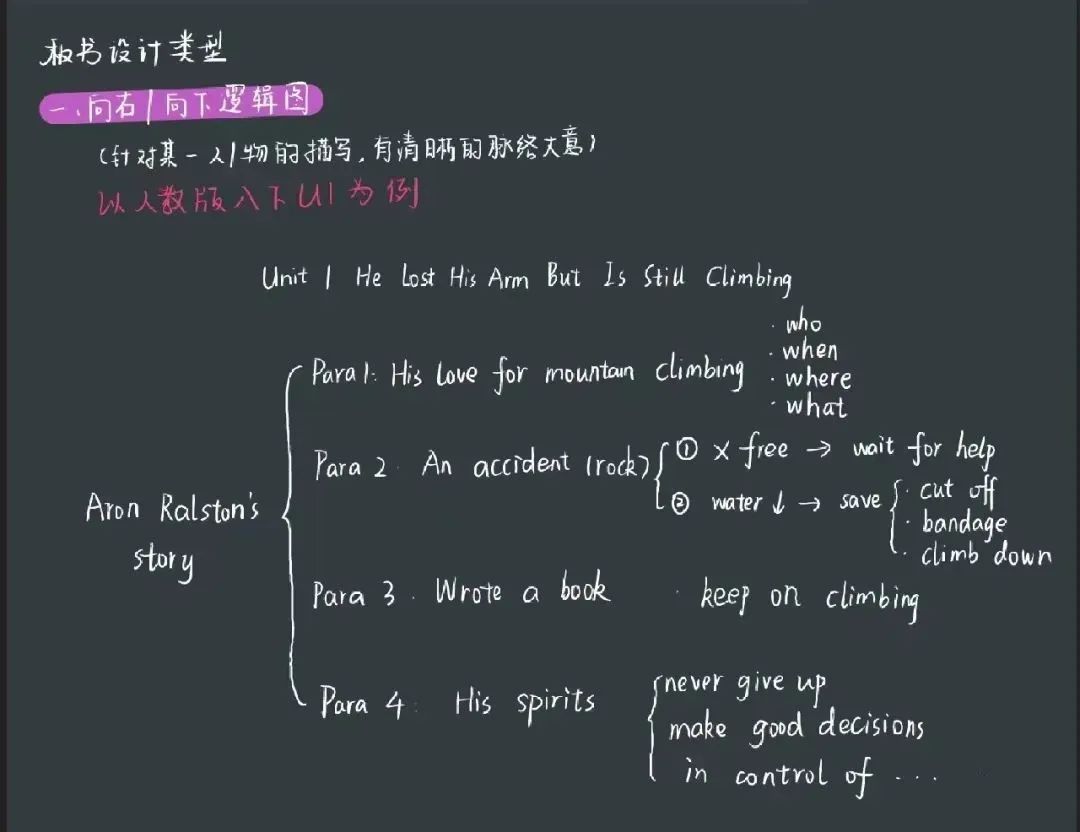 板书设计类型
一、向右/向下逻辑图
(针对某一人/物的描写,有清晰的脉络大意)
以人教版八下U1为例
Unit 1 He Lost His Arm But Is Still Climbing
Aron Ralston's
story
Para 1: His love for mountain climbing
· who
· when
· where
· what
Para 2. An accident (rock)
① × free → wait for help
② water ↓ → save
· cut off
· bandage
· climb down
Para 3. Wrote a book · keep on climbing
Para 4: His spirits
never give up
make good decisions
in control of ...